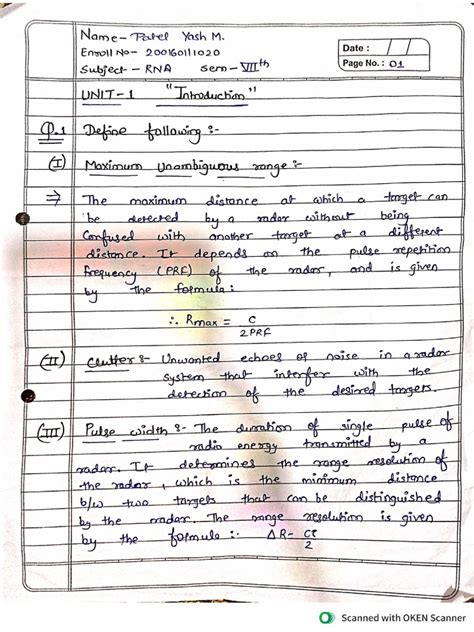 Name - Patel Yash M.
Enroll No - 200160111020
Subject - RNA Sem - VIIth
Date : / /
Page No. : 01
UNIT - 1 "Introduction"
Q.1 Define following :-
(I) Maximum Unambiguous range :-
⇒ The maximum distance at which a target can
be detected by a radar without being
Confused with another target at a different
distance. It depends on the pulse repetition
frequency (PRF) of the radar, and is given
by the formula :
∴ Rmax = C / 2PRF
(II) Clutter :- Unwanted echoes of noise in a radar
system that interfer with the
detection of the desired targets.
(III) Pulse width :- The duration of single pulse of
radio energy transmitted by a
radar. It determines the range resolution of
the radar, which is the minimum distance
b/w two targets that can be distinguished
by the radar. The range resolution is given
by the formula :- ΔR - Cτ / 2
Scanned with OKEN Scanner